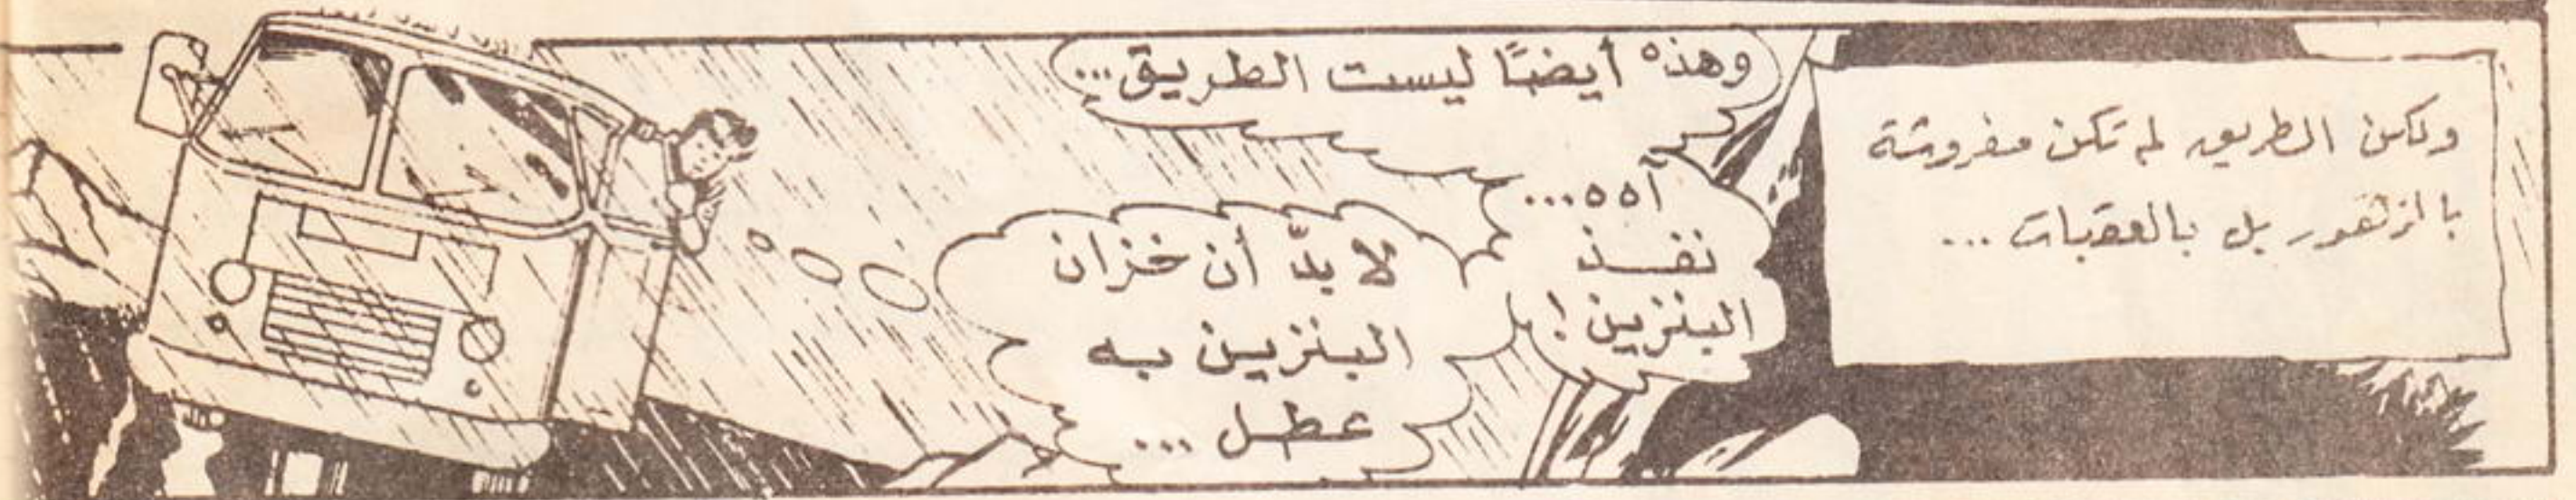 ولكن الطريق لم تكن مفروشة
بالزهور بل بالعقبات ...
وهذه أيضًا ليست الطريق...
آه ه...
نفـــذ
البنزين !
لا بدّ أن خزان
البنزيـن بـه
عطـل ...